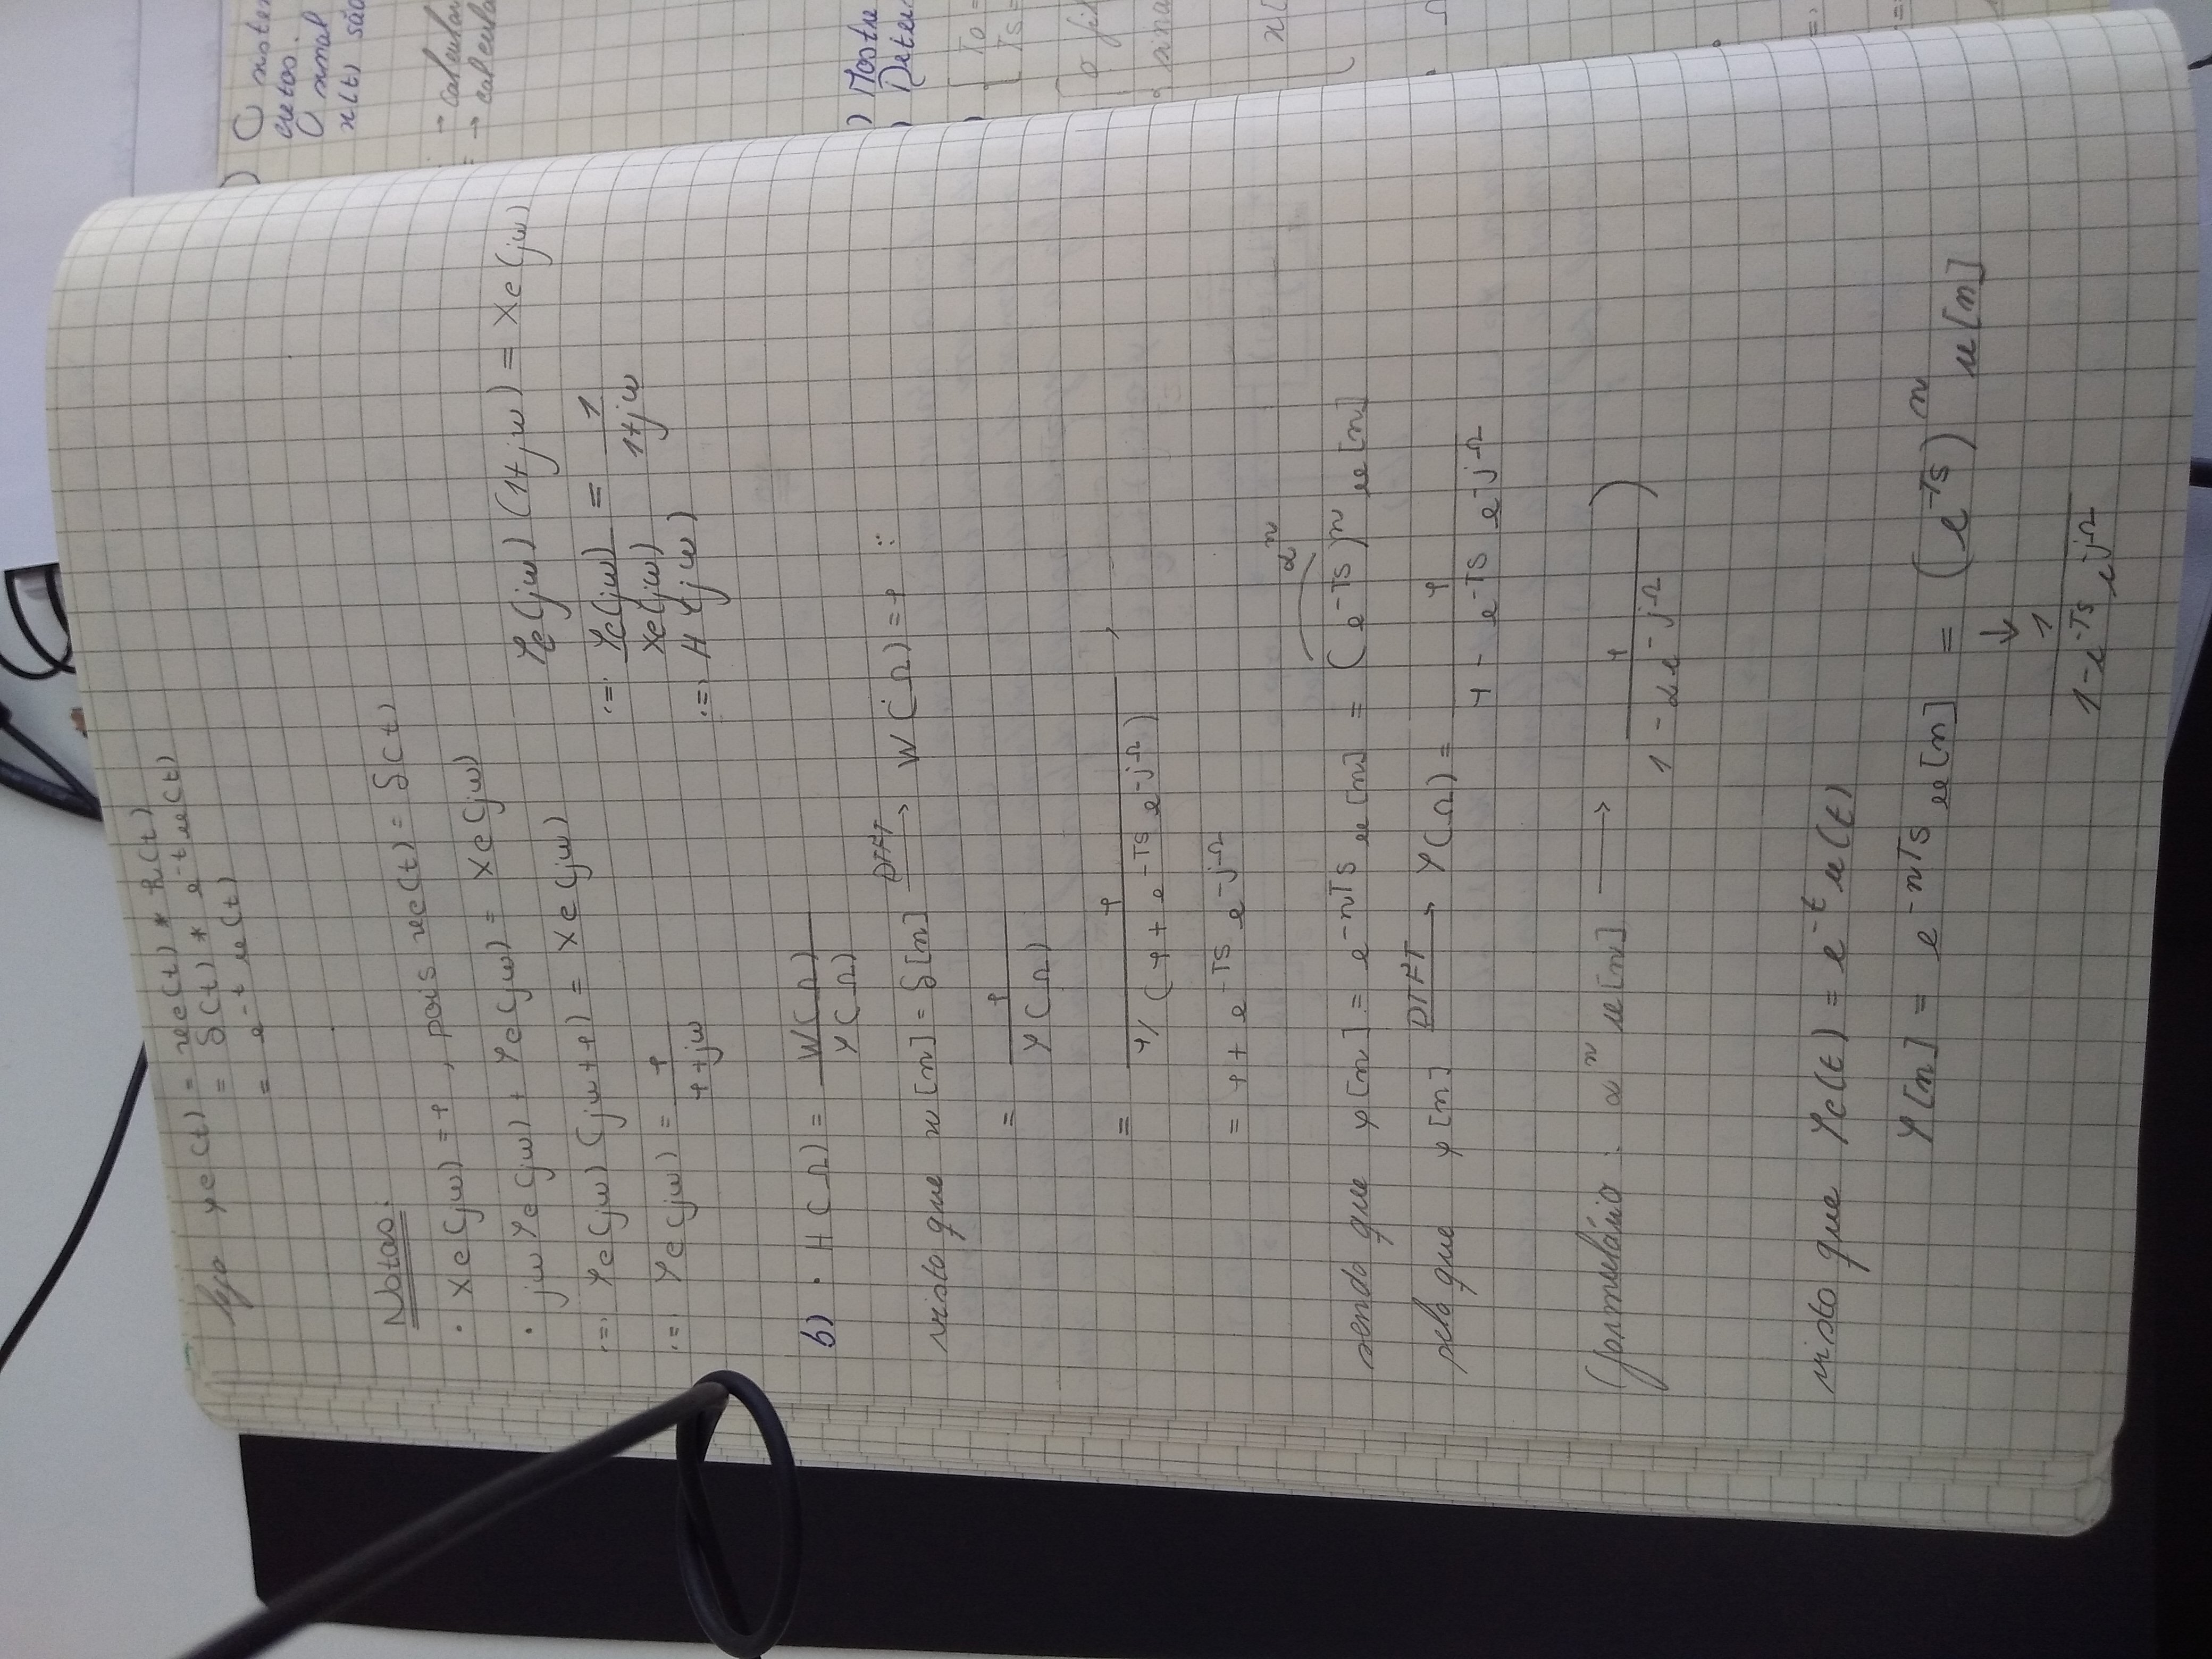 logo yc(t) = xc(t) * h(t)
= δ(t) * e^-t u(t)
= e^-t u(t)
Notas:
· Xc(jω) = 1, pois xc(t) = δ(t)
· jω Yc(jω) + Yc(jω) = Xc(jω)
(=) Yc(jω) (jω+1) = Xc(jω)
(=) Yc(jω) = 1/(1+jω)
Yc(jω) (1+jω) = Xc(jω)
(=) Yc(jω)/Xc(jω) = 1/(1+jω)
(=) H(jω)
b) · H(Ω) = W(Ω)/Y(Ω)
visto que w[n] = δ[n] DTFT → W(Ω) = 1 :
= 1/Y(Ω)
= 1/(1/(1 + e^-Ts e^-jΩ)) ,
= 1 + e^-Ts e^-jΩ
α^n
sendo que y[n] = e^-nTs u[n] = (e^-Ts)^n u[n]
pelo que y[n] DTFT → Y(Ω) = 1/(1 - e^-Ts e^-jΩ)
(formulário: α^n u[n] → 1/(1 - α e^-jΩ))
visto que Yc(t) = e^-t u(t)
Y[n] = e^-nTs u[n] = (e^-Ts)^n u[n]
↓
1/(1 - e^-Ts e^-jΩ)
O
cretos.
O sinal
x(t) são
→ calcular
→
) Mostre
)
[ To =
Ts =
o
x[